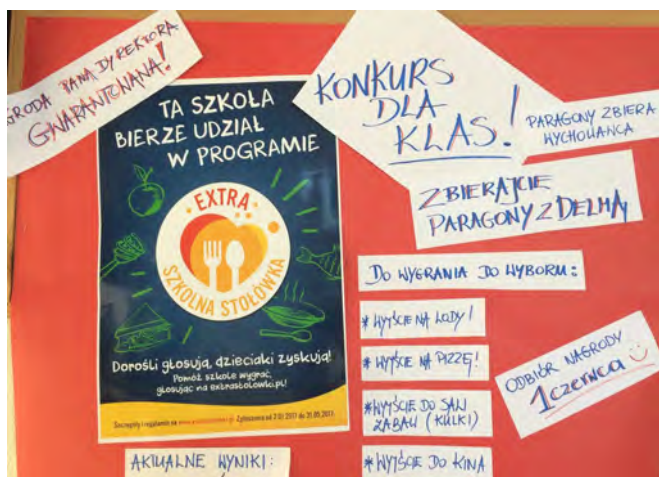 GRODA PANA DYREKTORA
GWARANTOWANA!
TA SZKOŁA
BIERZE UDZIAŁ
W PROGRAMIE
EXTRA
SZKOLNA STOŁÓWKA
Dorośli głosują, dzieciaki zyskują!
Pomóż szkole wygrać,
głosując na extrastolowki.pl!
Szczegóły i regulamin na Zgłoszenia od
AKTUALNE WYNIKI:
KONKURS
DLA
KLAS!
PARAGONY ZBIERA
WYCHOWAWCA
ZBIERAJCIE
PARAGONY Z DELMĄ
DO WYGRANIA DO WYBORU:
* WYJŚCIE NA LODY!
* WYJŚCIE NA PIZZĘ!
* WYJŚCIE DO SALI
ZABAW (KULKI)
* WYJŚCIE DO KINA
ODBIÓR NAGRODY
1 czerwca